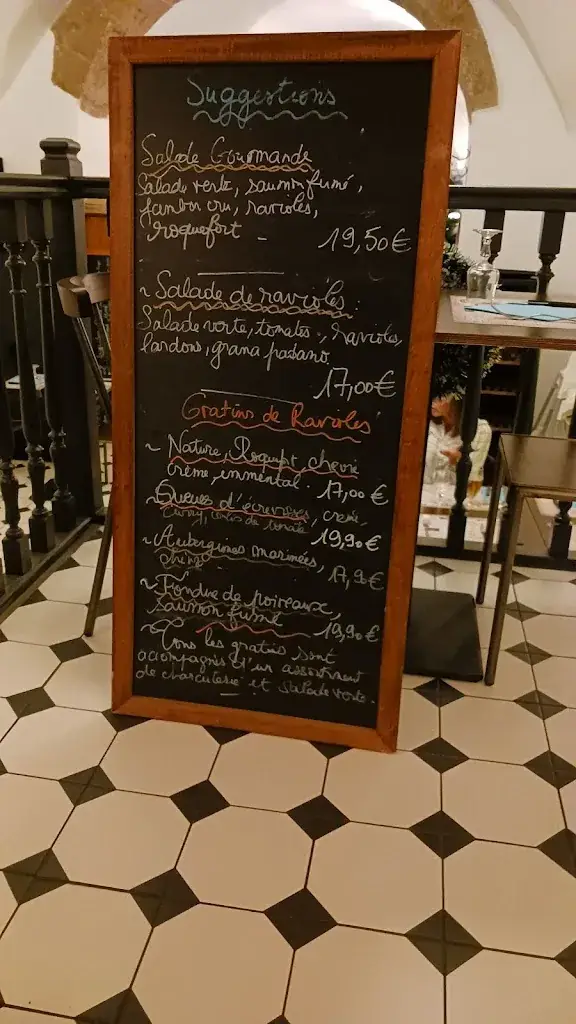 Suggestions
Salade Gourmande
Salade verte, saumon fumé,
jambon cru, ravioles,
roquefort - 19,50€
~ Salade de ravioles :
Salade verte, tomates, ravioles,
lardons, grana padano
17,00€
Gratins de Ravioles
~ Nature, Roquefort, chèvre
crème, emmental : 17,00€
~ Queues d'écrevisses, crème,
curry, de tomate 19,90€
~ Aubergines marinées,
17,90€
~ Fondue de poireaux,
saumon fumé 19,90€
~ Tous les gratins sont
acompagnés d'un assortiment
de charcuterie et salade verte.